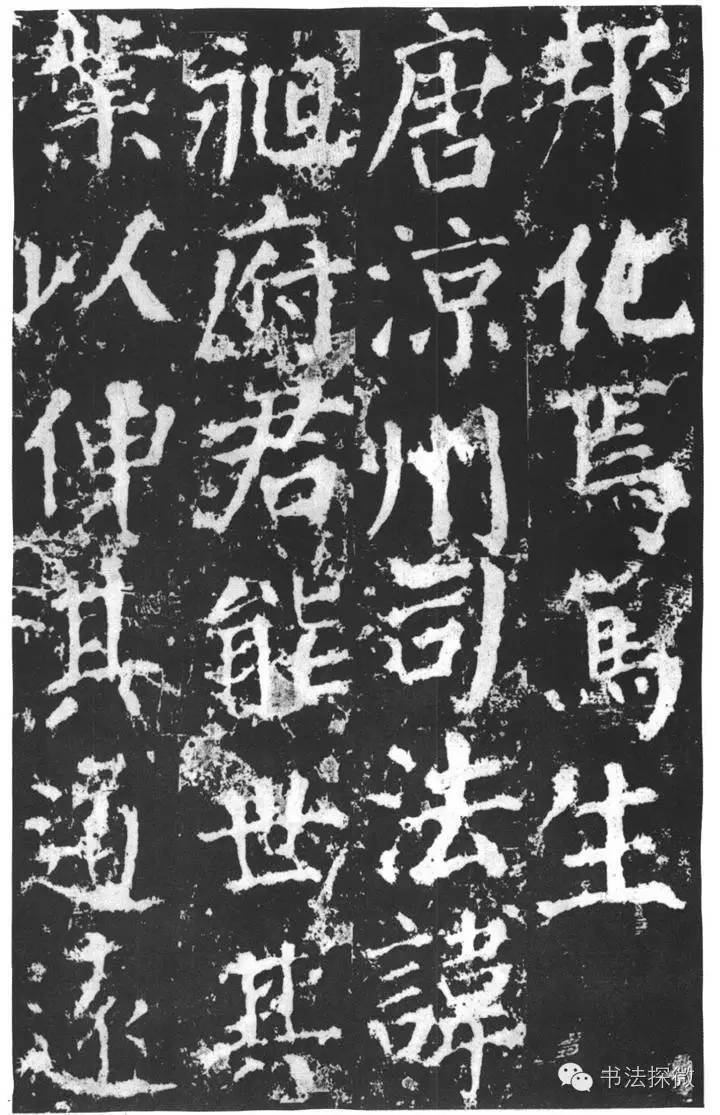 邦化焉篤生
唐涼州司法諱
昶府君能世其
業以伸其通遠
书法探微